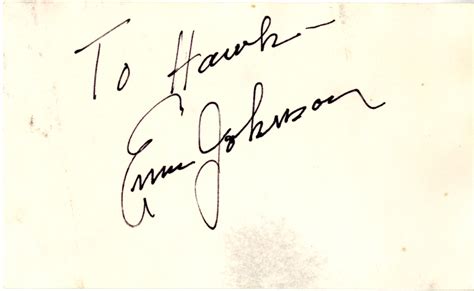 To Hawk —
Ernie Johnson